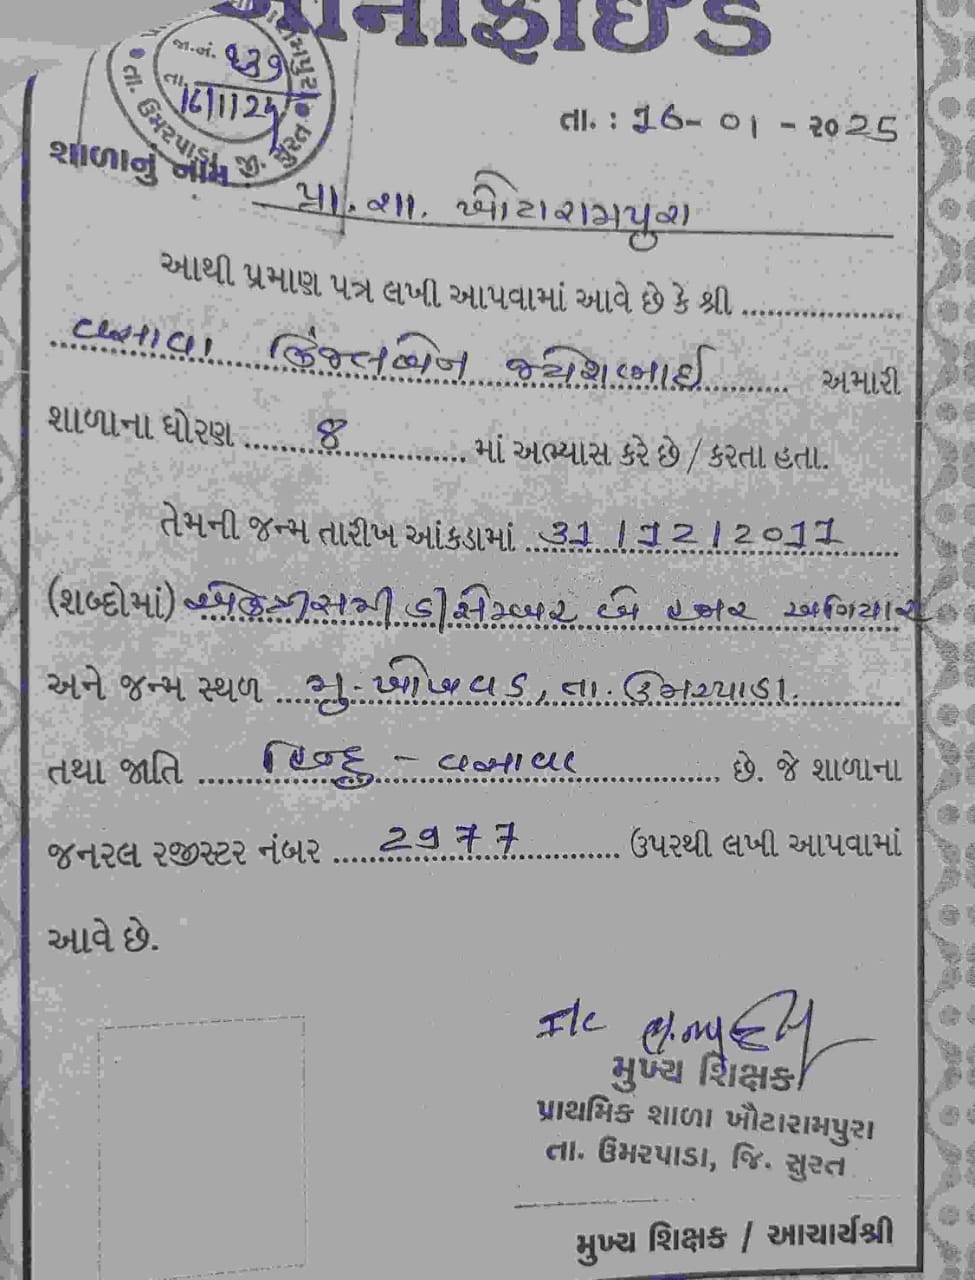 બોનાફાઈડ
જા.નં. ૬૩૭
તા. 16/1/25
તા. ઉમરપાડા, જી. સુરત
તા. : 16-01-2025
શાળાનું નામ :
પ્રા. શા. ખૌટારામપુરા
આથી પ્રમાણ પત્ર લખી આપવામાં આવે છે કે શ્રી ..................
વસાવા કિંજલબેન જયેશભાઈ ......... અમારી
શાળાના ધોરણ ....... ૪ ............. માં અભ્યાસ કરે છે / કરતા હતા.
તેમની જન્મ તારીખ આંકડામાં 31/12/2011
(શબ્દોમાં) એકત્રીસમી ડીસેમ્બર બે હજાર અગિયાર
અને જન્મ સ્થળ ... મુ. ખોખવડ, તા. ઉમરપાડા.
તથા જાતિ ........ હિન્દુ - વસાવા ............ છે. જે શાળાના
જનરલ રજીસ્ટર નંબર ..... 2977 .......... ઉપરથી લખી આપવામાં
આવે છે.
I/c
મુખ્ય શિક્ષક
પ્રાથમિક શાળા ખૌટારામપુરા
તા. ઉમરપાડા, જિ. સુરત
મુખ્ય શિક્ષક / આચાર્યશ્રી